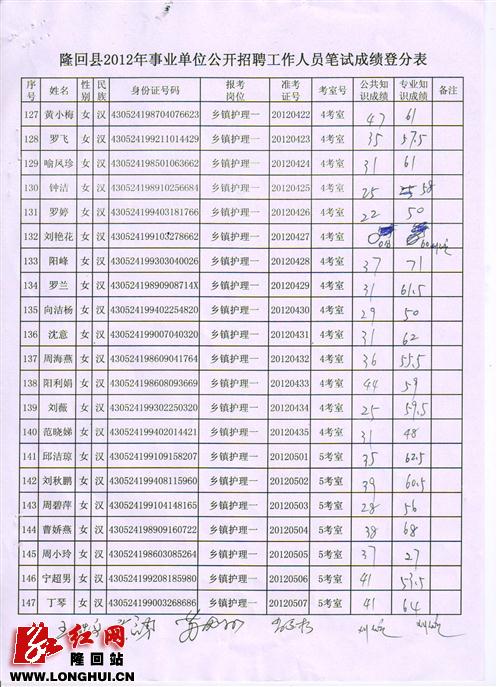 隆回县2012年事业单位公开招聘工作人员笔试成绩登分表
序号 姓名 性别 民族 身份证号码 报考岗位 准考证号 考室号 公共知识成绩 专业知识成绩 备注
127 黄小梅 女 汉 430524198704076623 乡镇护理一 20120422 4考室 47 61
128 罗飞 女 汉 430524199211014429 乡镇护理一 20120423 4考室 35 57.5
129 喻凤珍 女 汉 430524198501063662 乡镇护理一 20120424 4考室 31 61
130 钟洁 女 汉 430524198910256684 乡镇护理一 20120425 4考室 25 58
131 罗婷 女 汉 430524199403181766 乡镇护理一 20120426 4考室 22 50
132 刘艳花 女 汉 430524199103278662 乡镇护理一 20120427 4考室
133 阳峰 女 汉 430524199303040026 乡镇护理一 20120428 4考室 37 71
134 罗兰 女 汉 43052419890908714X 乡镇护理一 20120429 4考室 31 61.5
135 向洁杨 女 汉 430524199402254820 乡镇护理一 20120430 4考室 29 50
136 沈意 女 汉 430524199007040320 乡镇护理一 20120431 4考室 31 62
137 周海燕 女 汉 430524198609041764 乡镇护理一 20120432 4考室 36 55.5
138 阳利娟 女 汉 430524198608093669 乡镇护理一 20120433 4考室 44 59
139 刘薇 女 汉 430524199302250320 乡镇护理一 20120434 4考室 25 59.5
140 范晓娣 女 汉 430524199402014421 乡镇护理一 20120435 4考室 31 48
141 邱洁琼 女 汉 430524199109158207 乡镇护理一 20120501 5考室 35 62.5
142 刘秋鹏 女 汉 430524199408115960 乡镇护理一 20120502 5考室 39 60.5
143 周碧萍 女 汉 430524199104148165 乡镇护理一 20120503 5考室 28 56
144 曹娇燕 女 汉 430524198909160722 乡镇护理一 20120504 5考室 38 68
145 周小玲 女 汉 430524198603085264 乡镇护理一 20120505 5考室 37 27
146 宁超男 女 汉 430524199208185980 乡镇护理一 20120506 5考室 41 53.5
147 丁琴 女 汉 430524199003268686 乡镇护理一 20120507 5考室 41 64
红网
隆回站
WWW.LONGHUI.CN